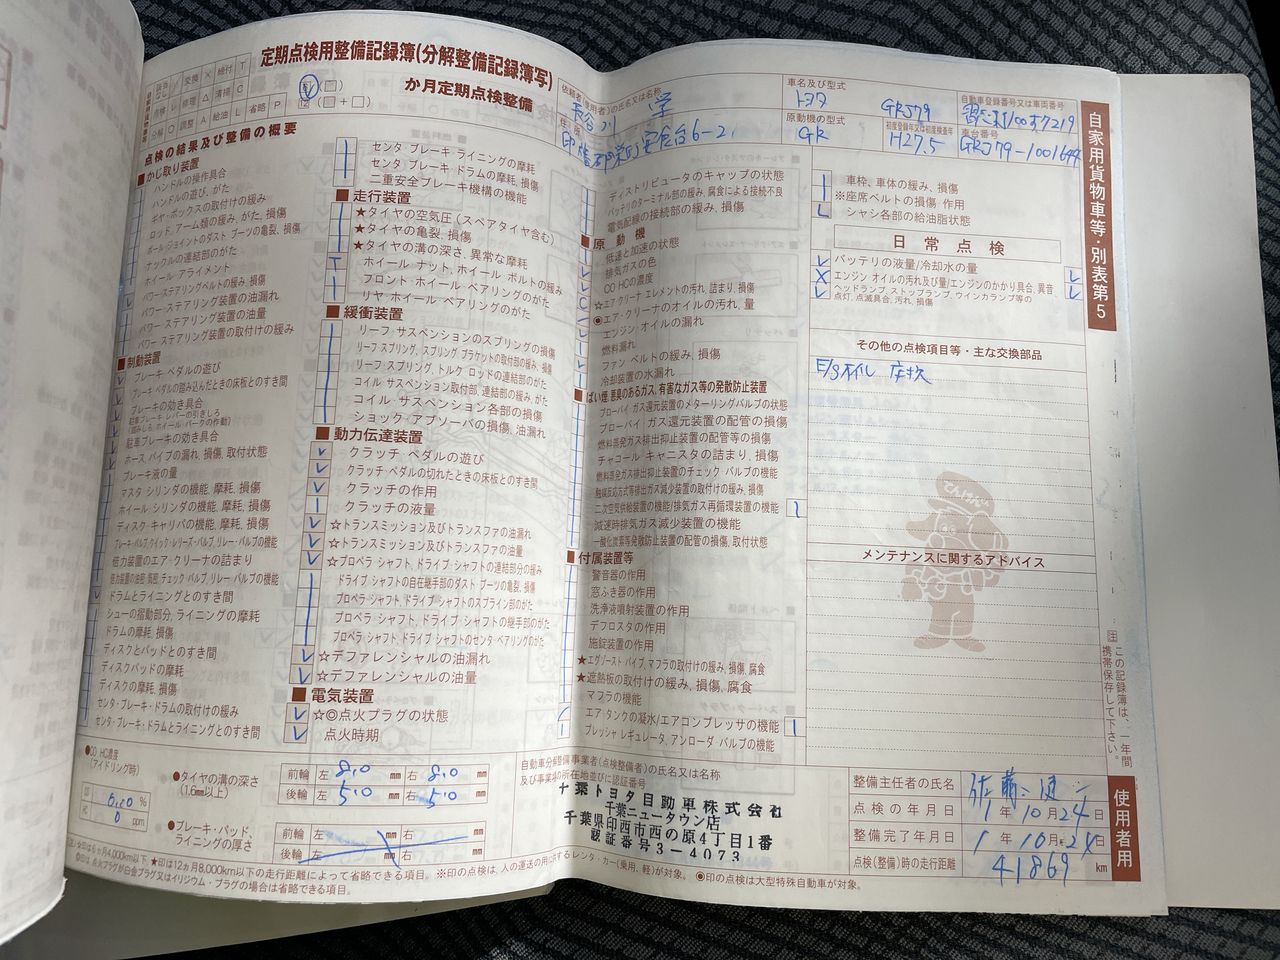 定期点検用整備記録簿(分解整備記録簿写)
か月定期点検整備
点検の結果及び整備の概要
交換 × 締付 T
修理 △ 清掃 C
調整 A 給油 L 省略 P
依頼者(使用者)の氏名又は名称
長谷川 学
住所
車名及び型式
トヨタ GRJ79
自動車登録番号又は車両番号
原動機の型式
GR
初度登録年又は初度検査年
H27.5
車台番号
自家用貨物車等・別表第5
■かじ取り装置
ハンドルの操作具合
ハンドルの遊び、がた
ギヤ・ボックスの取付の緩み
ロッド、アーム類の緩み、がた、損傷
ボール・ジョイントのダスト・ブーツの亀裂、損傷
ナックルの連結部のがた
ホイール・アライメント
パワー・ステアリングベルトの緩み、損傷
パワー・ステアリング装置の油漏れ
パワー・ステアリング装置の油量
パワー・ステアリング装置の取付けの緩み
■制動装置
ブレーキ・ペダルの遊び
ブレーキ・ペダルの踏み込んだときの床板とのすき間
ブレーキの効き具合
駐車ブレーキ・レバーの引きしろ
駐車ブレーキの効き具合
ホース・パイプの漏れ、損傷、取付状態
ブレーキ液の量
マスタ・シリンダの機能、摩耗、損傷
ホイール・シリンダの機能、摩耗、損傷
ディスク・キャリパの機能、摩耗、損傷
ブレーキ・バルブ、クイック・レリーズ・バルブ、リレー・バルブの機能
倍力装置のエア・クリーナの詰まり
ドラムとライニングとのすき間
シューの摺動部分、ライニングの摩耗
ドラムの摩耗、損傷
ディスクとパッドとのすき間
ディスクパッドの摩耗
ディスクの摩耗、損傷
センタ・ブレーキ・ドラムの取付の緩み
センタ・ブレーキ・ドラムとライニングとのすき間
センタ・ブレーキ・ライニングの摩耗
センタ・ブレーキ・ドラムの摩耗、損傷
二重安全ブレーキ機構の機能
■走行装置
★タイヤの空気圧(スペアタイヤ含む)
★タイヤの亀裂、損傷
★タイヤの溝の深さ、異常な摩耗
ホイール・ナット、ホイール・ボルトの緩み
フロント・ホイール・ベアリングのがた
リヤ・ホイール・ベアリングのがた
■緩衝装置
リーフ・サスペンションのスプリングの損傷
リーフ・スプリング、スプリング・ブラケットの取付部の緩み、損傷
リーフ・スプリング、トルク・ロッドの連結部のがた
コイル・サスペンション取付部、連結部の緩み、がた
コイル・サスペンション各部の損傷
ショック・アブソーバの損傷、油漏れ
■動力伝達装置
クラッチ・ペダルの遊び
クラッチ・ペダルの切れたときの床板とのすき間
クラッチの作用
クラッチの液量
☆トランスミッション及びトランスファの油漏れ
☆トランスミッション及びトランスファの油量
☆プロペラ・シャフト、ドライブ・シャフトの連結部分の緩み
ドライブ・シャフトの自在継手部のダスト・ブーツの亀裂、損傷
プロペラ・シャフト、ドライブ・シャフトのスプライン部のがた
プロペラ・シャフト、ドライブ・シャフトの継手部のがた
プロペラ・シャフト、ドライブ・シャフトのセンタ・ベアリングのがた
☆デファレンシャルの油漏れ
☆デファレンシャルの油量
■電気装置
☆◎点火プラグの状態
点火時期
ディストリビュータのキャップの状態
バッテリのターミナル部の緩み、腐食による接続不良
電気配線の接続部の緩み、損傷
■原動機
低速と加速の状態
排気ガスの色
CO HCの濃度
☆エア・クリーナ・エレメントの汚れ、詰まり、損傷
◉エア・クリーナのオイルの汚れ、量
エンジン・オイルの漏れ
燃料漏れ
ファン・ベルトの緩み、損傷
冷却装置の水漏れ
■ばい煙、悪臭のあるガス、有害なガス等の発散防止装置
ブローバイ・ガス還元装置のメターリングバルブの状態
ブローバイ・ガス還元装置の配管の損傷
燃料蒸発ガス排出抑止装置の配管等の損傷
チャコール・キャニスタの詰まり、損傷
燃料蒸発ガス排出抑止装置のチェック・バルブの機能
触媒反応方式等排出ガス減少装置の取付けの緩み、損傷
二次空気供給装置の機能/排気ガス再循環装置の機能
減速時排気ガス減少装置の機能
一酸化炭素等発散防止装置の配管の損傷、取付状態
■付属装置等
警音器の作用
窓ふき器の作用
洗浄液噴射装置の作用
デフロスタの作用
施錠装置の作用
★エグゾースト・パイプ、マフラの取付けの緩み、損傷、腐食
★遮熱板の取付けの緩み、損傷、腐食
マフラの機能
エア・タンクの凝水/エアコンプレッサの機能
プレッシャ・レギュレータ、アンローダ・バルブの機能
車枠、車体の緩み、損傷
※座席ベルトの損傷・作用
シャシ各部の給油脂状態
日常点検
バッテリの液量/冷却水の量
エンジン・オイルの汚れ及び量/エンジンのかかり具合、異音
ヘッドランプ、ストップランプ、ウインカランプ等の
点灯、点滅具合、汚れ、損傷
その他の点検項目等・主な交換部品
メンテナンスに関するアドバイス
てんけんくん
注 この記録簿は、一年間
携帯保存して下さい。
●CO HC濃度
(アイドリング時)
%
0 ppm
●タイヤの溝の深さ
(1.6㎜以上)
前輪 左 8.0 ㎜ 右 8.0 ㎜
後輪 左 5.0 ㎜ 右 5.0 ㎜
●ブレーキ・パッド、
ライニングの厚さ
前輪 左 ㎜ 右 ㎜
後輪 左 ㎜ 右 ㎜
自動車分解整備事業者(点検整備者)の氏名又は名称
及び事業場の所在地並びに認証番号
千葉トヨタ自動車株式会社
千葉ニュータウン店
千葉県印西市西の原4丁目1番
認証番号3-4073
整備主任者の氏名
点検の年月日 1年10月24日
整備完了年月日 1年10月24日
点検(整備)時の走行距離 41869 km
使用者用